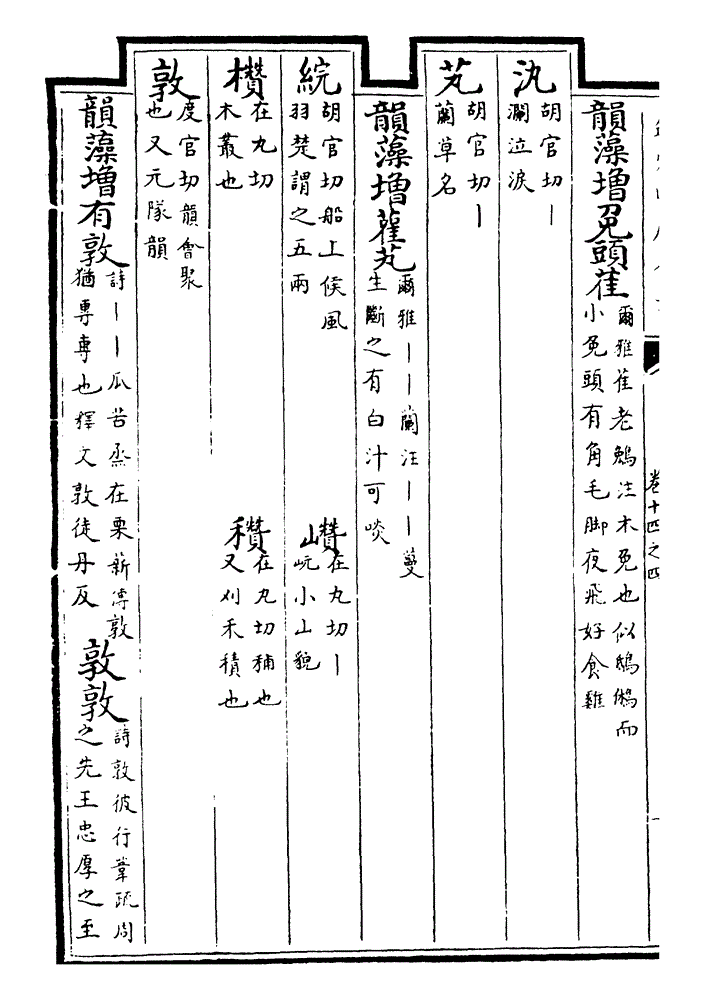 卷十四之四
韻藻增兔頭萑 爾雅萑老鵵注木兔也似鴟鵂而小兔頭有角毛脚夜飛好食雞
汍 胡官切丨瀾泣淚
芄 胡官切丨蘭草名
韻藻增雚芄 爾雅丨丨蘭注丨丨蔓生斷之有白汁可啖
綄 胡官切船上候風羽楚謂之五兩
巑 在丸切丨岏小山貌
欑 在丸切木叢也
穳 在丸切穳也又刈禾積也
敦 度官切韻會聚也又元隊韻
韻藻增有敦 詩丨丨瓜苦烝在栗薪傳敦猶專專也釋文敦徒丹反
敦敦 詩敦彼行葦疏周之先王忠厚之至